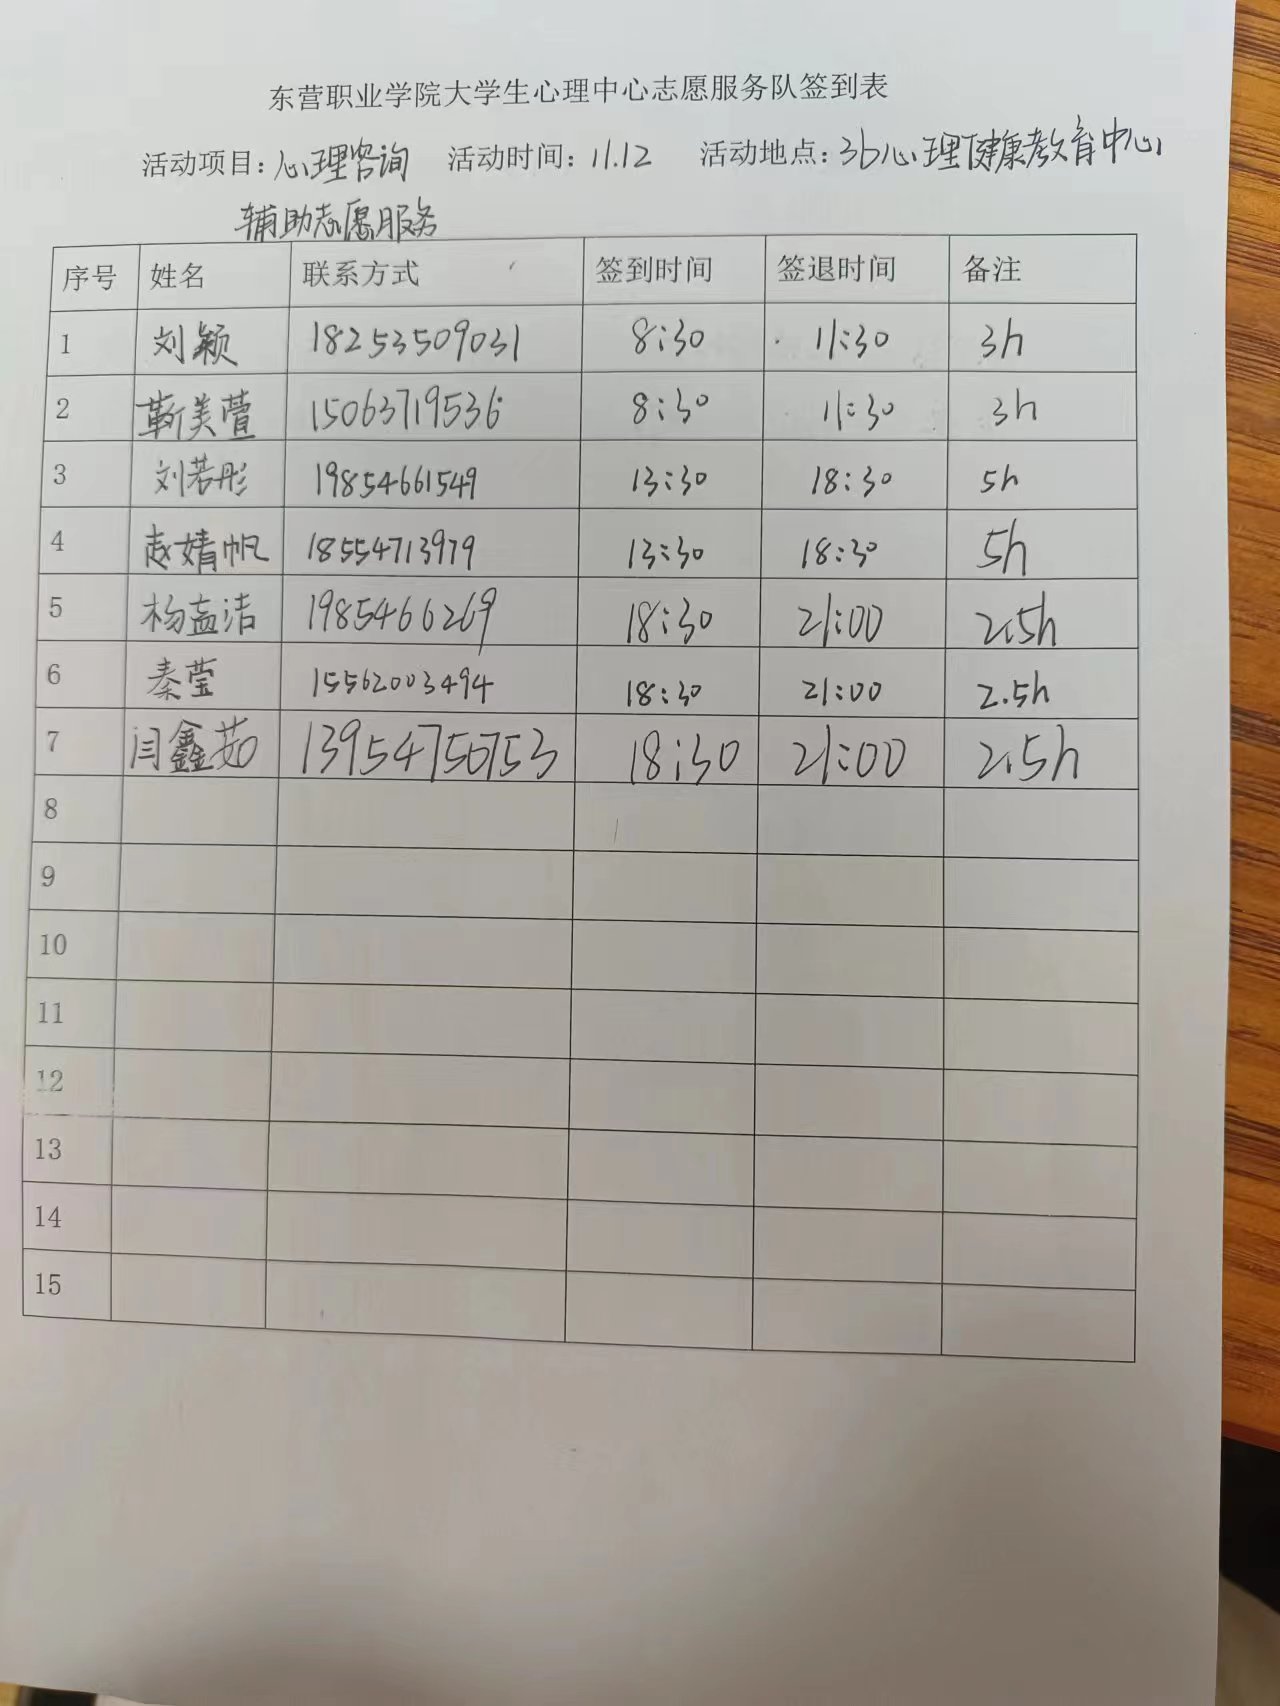 东营职业学院大学生心理中心志愿服务队签到表
活动项目：心理咨询 活动时间：11.12 活动地点：3b心理健康教育中心
辅助志愿服务
序号 姓名 联系方式 签到时间 签退时间 备注
1 刘颖 18253509031 8:30 11:30 3h
2 靳美萱 15063719536 8:30 11:30 3h
3 刘若彤 19854661549 13:30 18:30 5h
4 赵婧帆 18554713979 13:30 18:30 5h
5 杨孟洁 1985466269 18:30 21:00 2.5h
6 秦莹 15562003494 18:30 21:00 2.5h
7 闫鑫茹 13954756753 18:30 21:00 2.5h
8
9
10
11
12
13
14
15